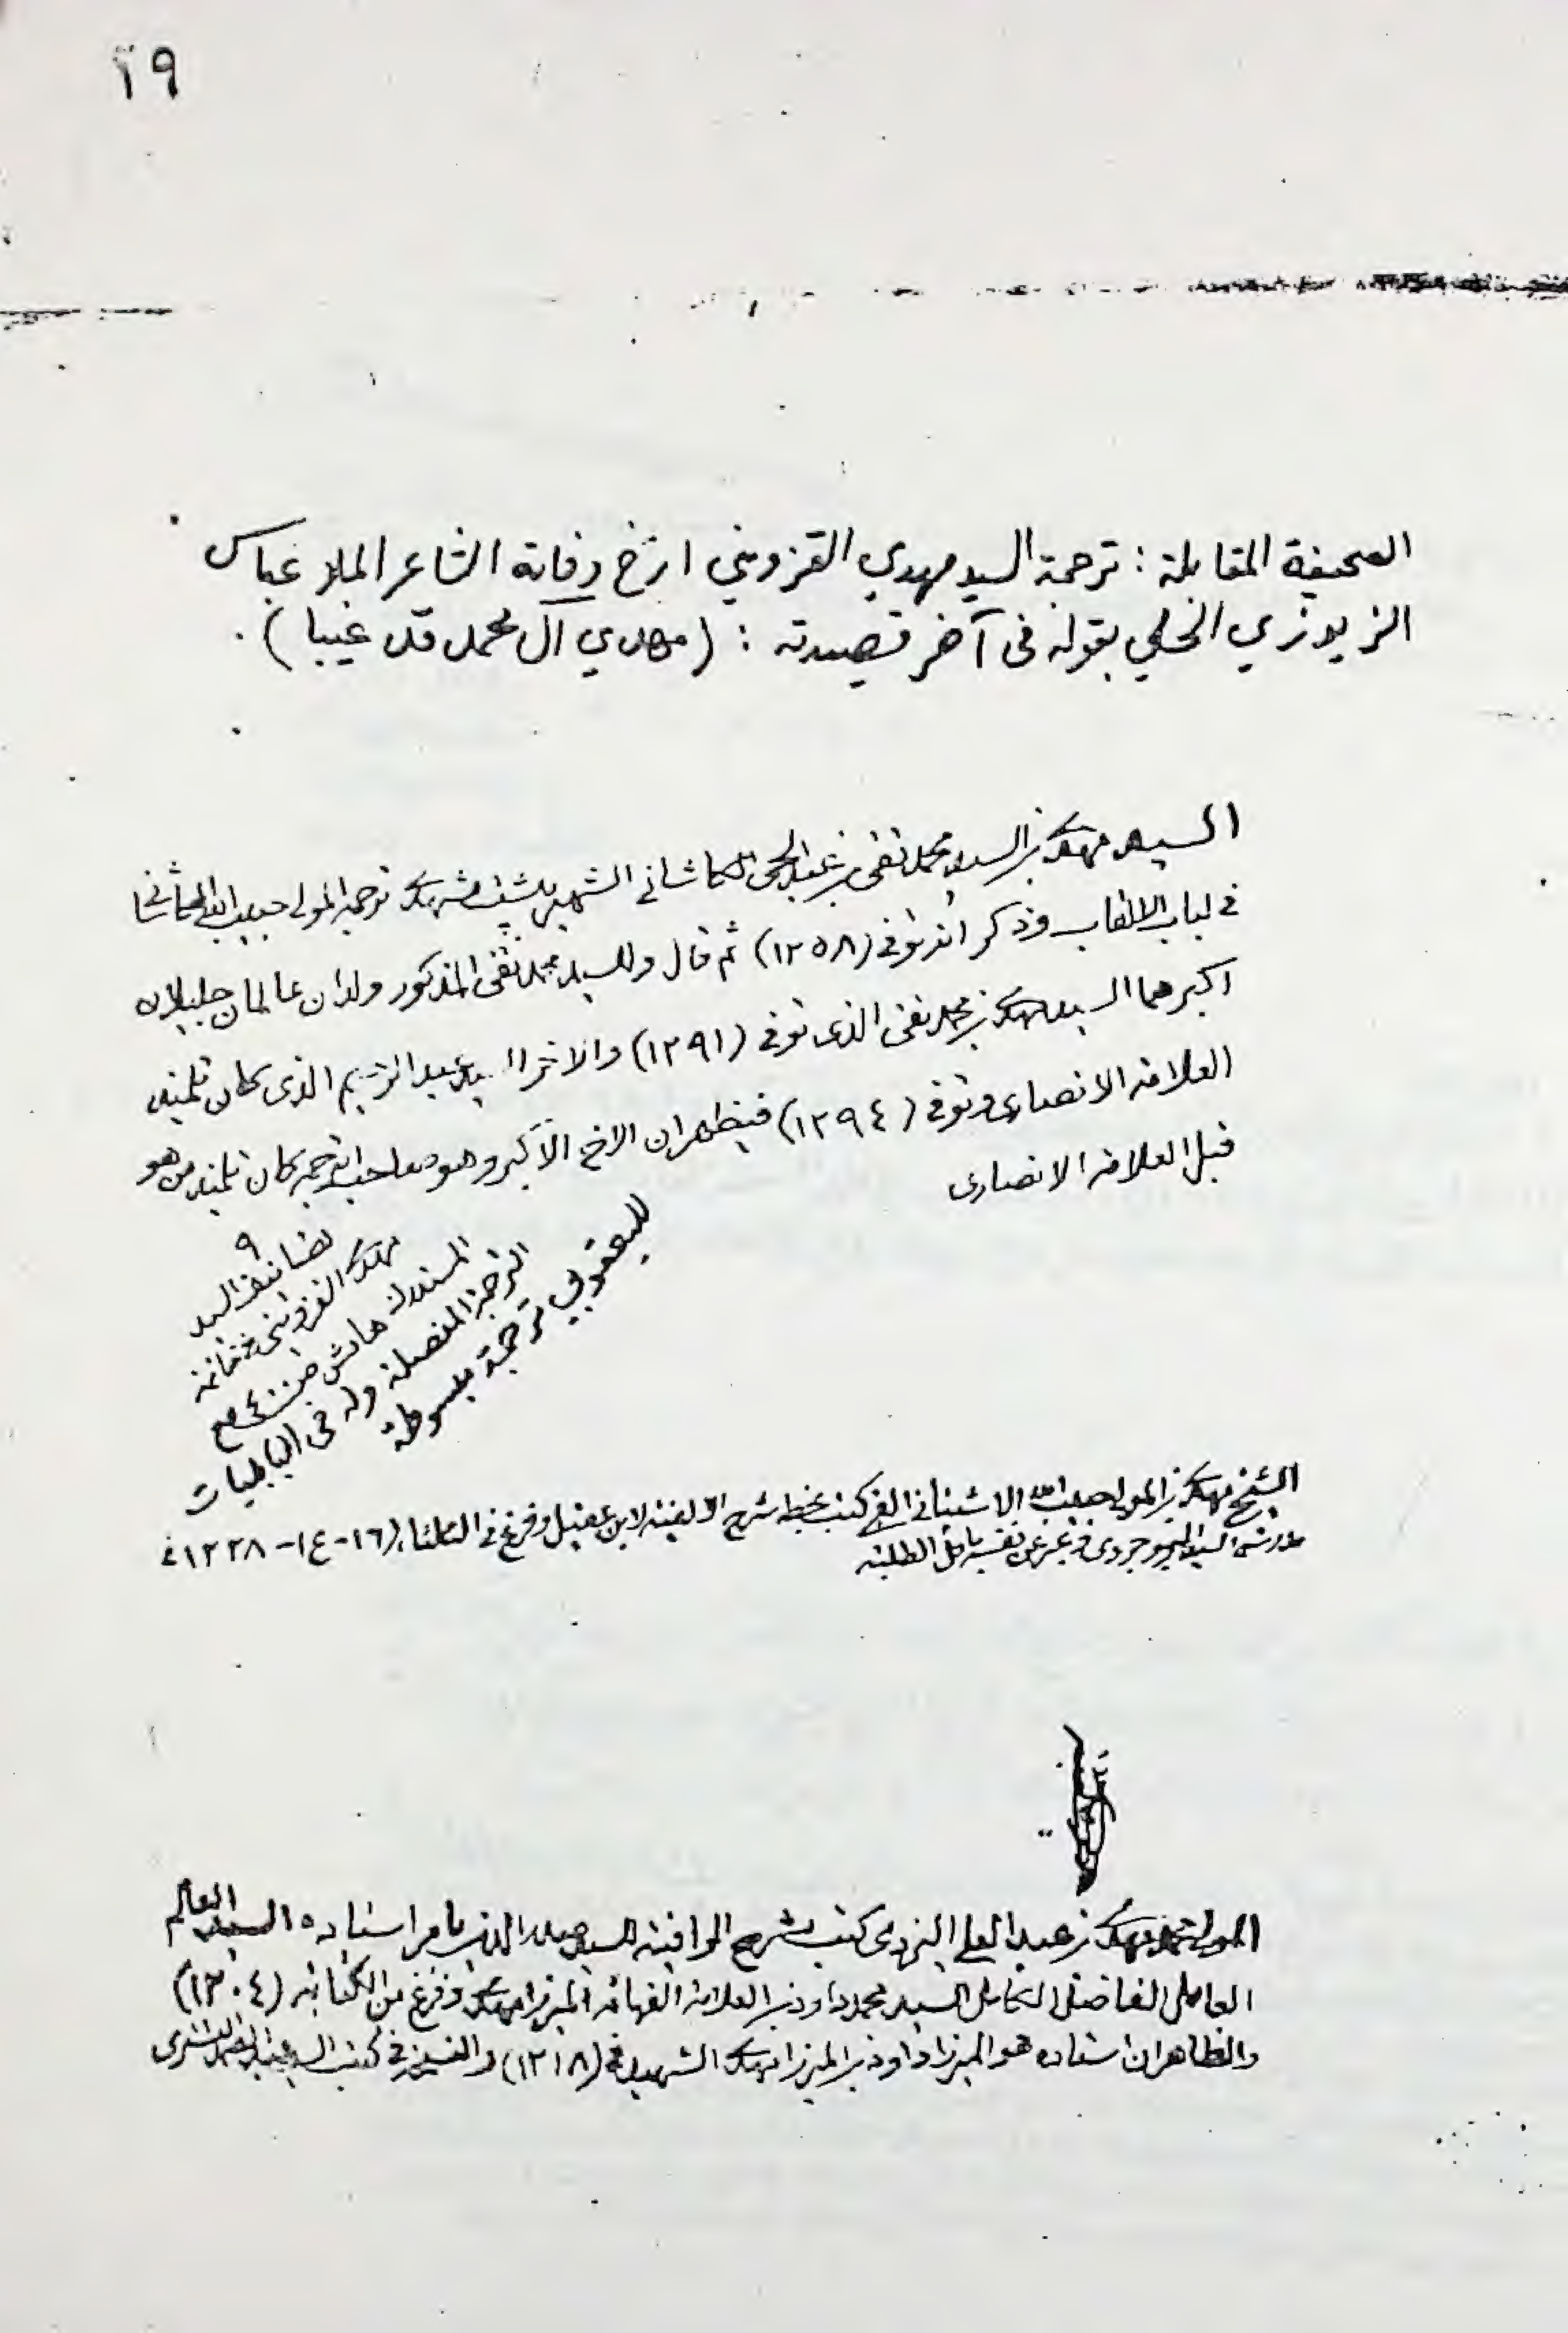 ٦٩
الصحيفة المقابلة : ترجمة السيد مهدي القزويني ارّخ وفاته الشاعر الملا عباس
الزيوزي الحلي بقوله في آخر قصيدته : (مهدي آل محمد قد غيبا) .
السيد مهدى بن السيد محمد تقى بن عبد الحى الكاشانى الشهير بپشت مشهدى ترجمه المولى حبيب الله الكاشانى
فى لباب الالقاب وذكر انه توفى (١٢٥٨) ثم قال وللسيد محمد تقى المذكور ولدان عالمان جليلان
اكبرهما السيد مهدى بن محمد تقى الذى توفى (١٢٩١) والاخر السيد عبد الرحيم الذى كان تلميذ
العلامه الانصارى وتوفى (١٢٩٤) فيظهر ان الاخ الاكبر وهو صاحب الترجمه كان تلميذ من هو
قبل العلامه الانصارى
تصانيف السيد
مهدى القزوينى فى خاتمة
المستدرك هامش ص ٤٠٠ مع
الترجمة المفصلة وله في البابليات
لليعقوبي ترجمة مبسوطة
الشيخ مهدى بن المولى حبيب الله الاشتيانى كتب بخطه شرح الالفيه لابن عقيل وفرغ فى الثلثاء (١٦-ع١-١٢٣٨) فى
مدرسة السيد البروجردى وعبر عن نفسه باقل الطلبه
المولى محمد مهدى بن عبد العلى اليزدى كتب شرح الوافيه للسيد صدر الدين بامر استاده السيد العالم
العامل الفاضل الكامل السيد محمد داود بن العلامة الفهامه الميرزا مهدى وفرغ من الكتابه (١٢٠٤)
والظاهر ان استاده هو الميرزا داود بن الميرزا مهدى الشهيد فى (١٢١٨) والنسخه فى كتب السيد التسترى